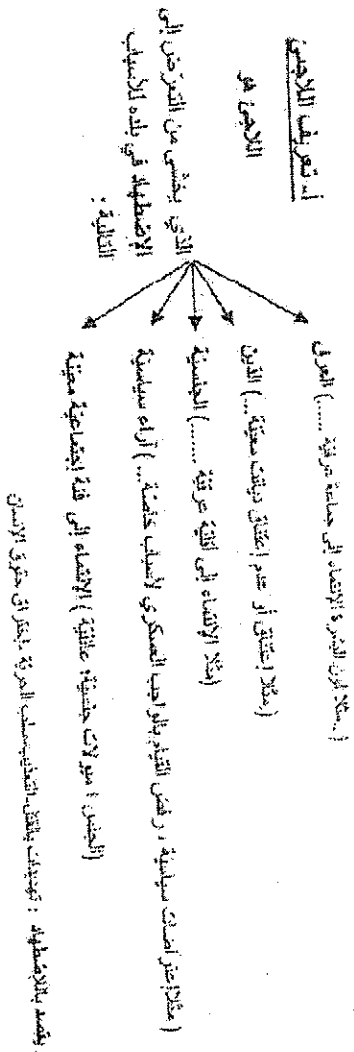 أ- تعريف اللاجئ
اللاجئ هو
الذي يخشى من التعرض إلى
الإضطهاد في بلده للأسباب
التالية :
العرق (......مثلا لون البشرة الإنتماء إلى جماعة عرقية )
الدين (...مثلا إعتناق أو عدم إعتناق ديانات معينة )
الجنسية (......مثلا الإنتماء إلى أقلية عرقية)
آراء سياسية (...مثلا إعتراضات سياسية ، رفض القيام بالواجب العسكري لأسباب خاصة)
الإنتماء إلى فئة إجتماعية معينة (الجنس ، ميولات جنسية، عائلية)
يقصد بالإضطهاد : تهديدات بالقتل-التعذيب-سلب الحرية -إختراق حقوق الانسان